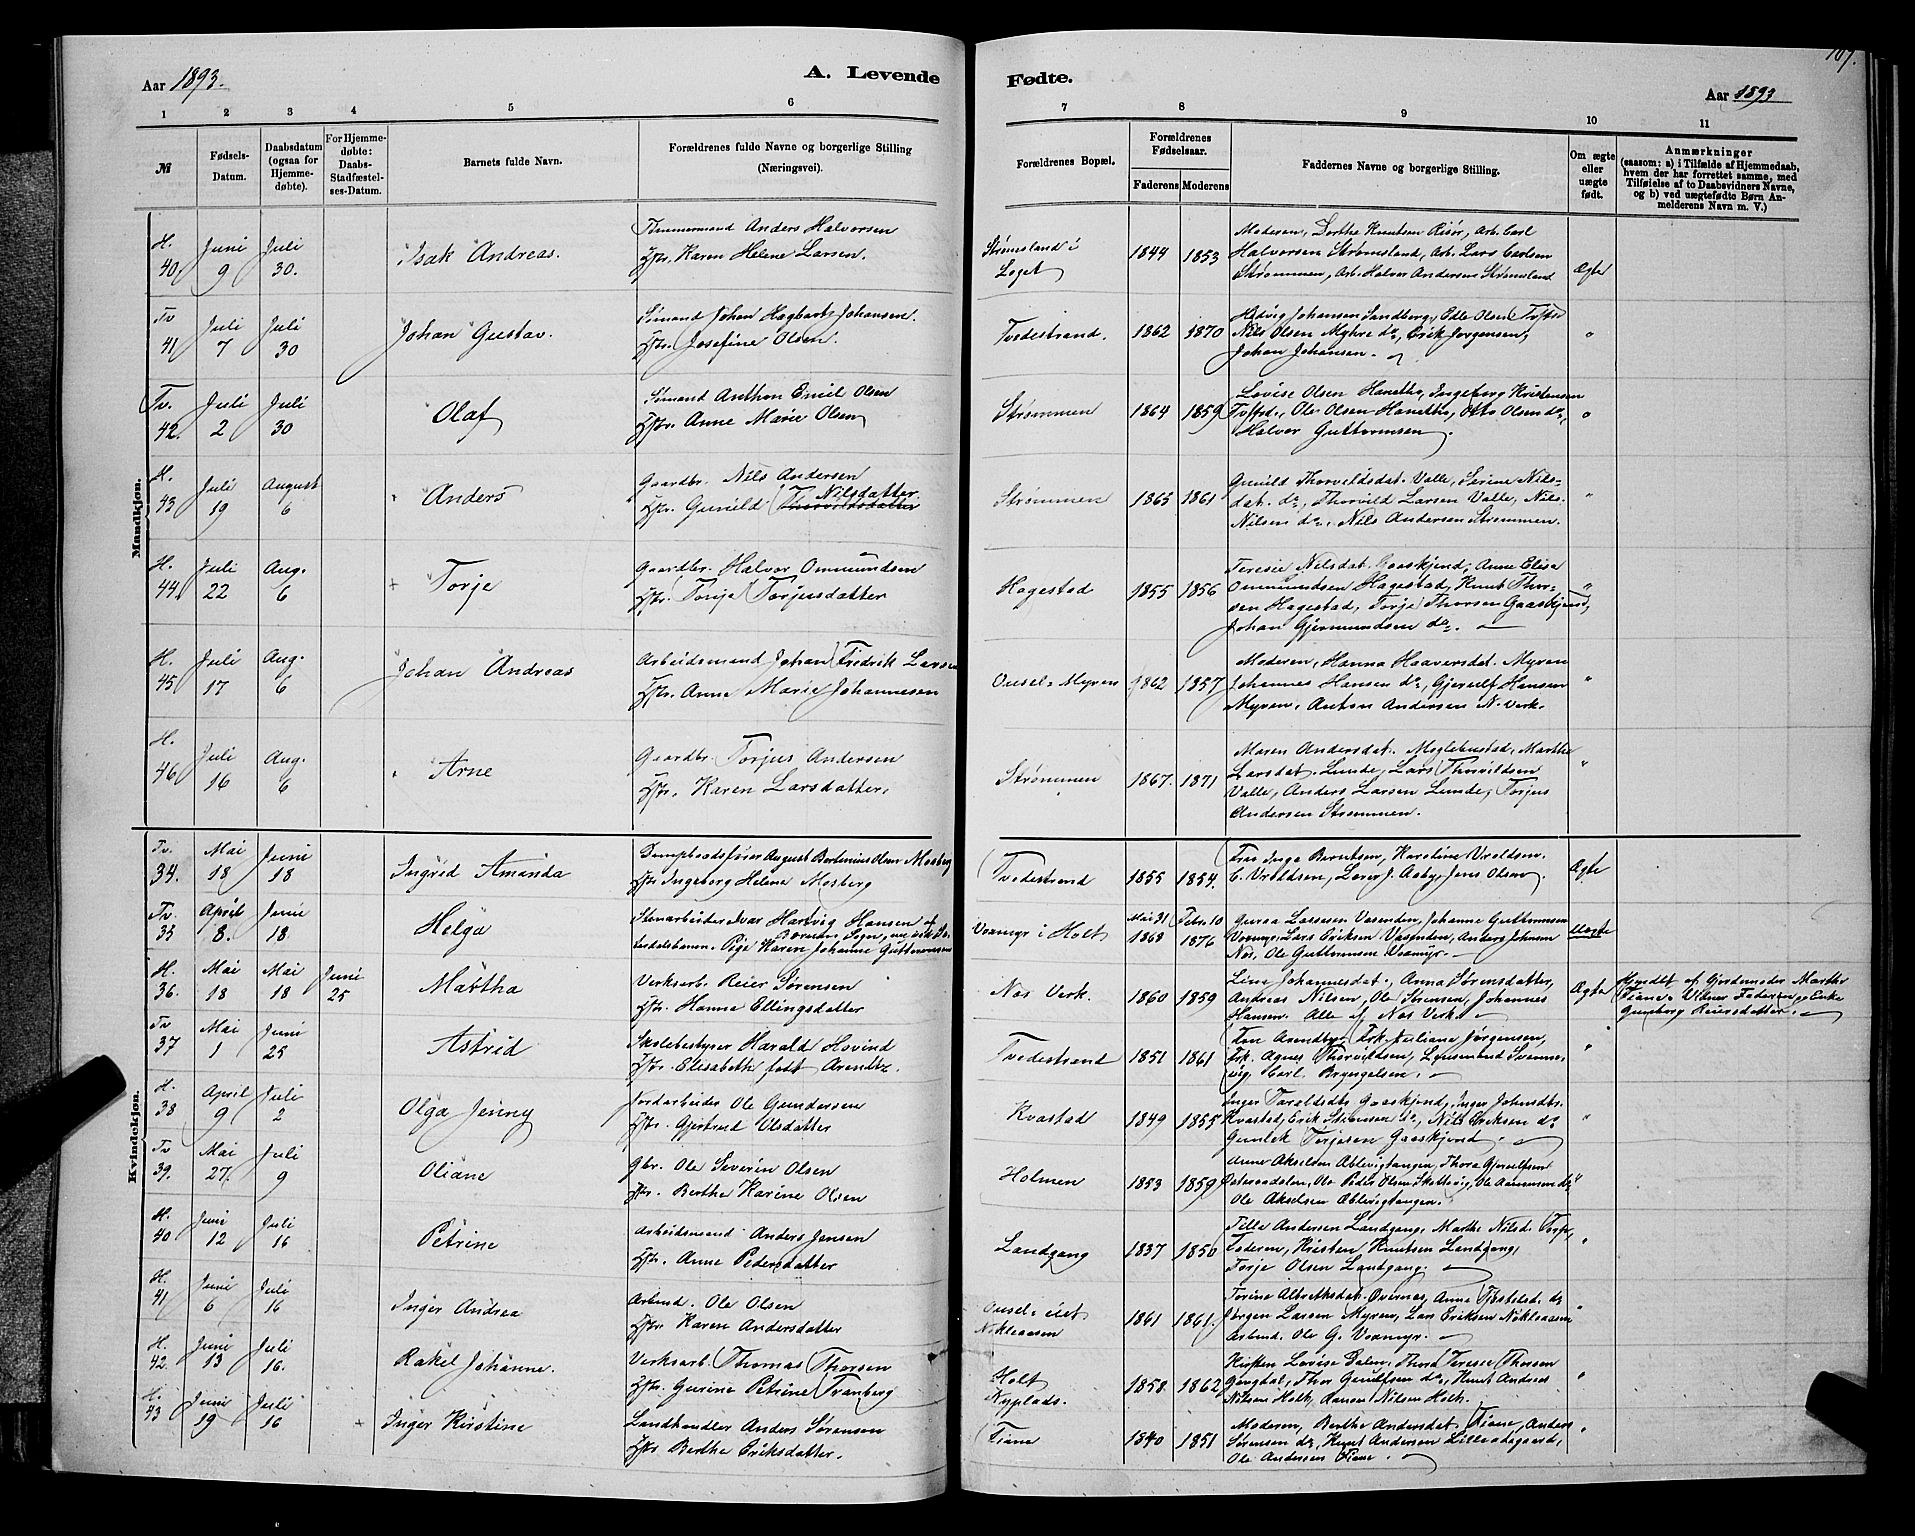 Aar 1893.
A. Levende
1 2 3 4 5 6
№
Fødsels-
Datum.
Daabsdatum
(ogsaa for
Hjemme-
døbte).
For Hjemme-
døbte:
Daabs-
Stadfæstel-
ses-Datum.
Barnets fulde Navn.
Forældrenes fulde Navne og borgerlige Stilling
(Næringsvei).
Mandkjøn.
H. 40. Juni 9 Juli 30. Isak Andreas.
Tømmermand Anders Halvorsen
Hstr. Karen Helene Larsen.
Tv 41 Juli 7 Juli 30 Johan Gustav.
Sømand Johan Hagbart Johansen
Hstr. Josefine Olsen.
Tv. 42. Juli 2 Juli 30 Olaf
Sømand Anthon Emil Olsen
Hstr. Anne Marie Olsen
H. 43 Juli 19 August 6 Anders
Gaardbr. Nils Andersen
Nilsdatter
Hstr. Gunild Thorvildsdatter
H. 44. Juli 22 Aug. 6 Torje
Gaardbr. Halvor Ommundsen
Hstr. Torje Torjusdatter
H. 45 Juli 17 Aug. 6 Johan Andreas
Arbeidsmand Johan Fredrik Larsen
Hstr. Anne Marie Johannesen
H. 46 Juli 16 Aug. 6 Arne
Gaardbr. Torjus Andersen
Hstr. Karen Larsdatter.
Kvindekjøn.
Tv. 34. Mai 18 Juni 18 Ingrid Amanda
Dampbaadsfører August Bertinius Olsen Mosberg
Hstr Ingeborg Helene Mosberg
Tv. 35 April 8. Juni 18. Helga
Stenarbeider Ivar Hartvig Hansen af
Pige Karen Johanne Guttormsen
H. 36. Mai 18 Mai 18 Juni 25 Martha
Verksarb. Reier Sørensen
Hstr. Hanna Ellingsdatter
Tv. 37 Mai 1 Juni 25 Astrid
Skolebestyrer Harald Hovind
Hstr. Elisabeth født Arentz.
H. 38 April 9 Juli 2 Olga Jenny
Jordarbeider Ole Gundersen
Hstr. Gjertrud Olsdatter
Tv 39. Mai 27. Juli 9 Oliane
Gbr. Ole Severin Olsen
Hstr. Berthe Karine Olsen
H. 40 Juni 12 Juli 16 Petrine
Arbeidsmand Anders Jensen
Hstr. Anne Pedersdatter
H. 41 Juni 6 Juli 16 Inger Andrea
Arbmd. Ole Olsen
Hstr. Karen Andersdatter
H. 42. Juni 13 Juli 16. Rakel Johanne.
Verksarb. Thomas Thorsen
Hstr. Gurine Petrine Tranberg
H. 43 Juni 19 Juli 16 Inger Kirstine
Landhandler Anders Sørensen
Hstr Berthe Eriksdatter.
Fødte.
107.
Aar 1893
7 8 9 10 11
Forældrenes Bopæl.
Forældrenes
Fødselsaar.
Faderens Moderens
Faddernes Navne og borgerlige Stilling.
Om ægte
eller
uægte
født.
Anmærkninger
(saasom: a) i Tilfælde af Hjemmedaab,
hvem der har forrettet samme, med
Tilføielse af to Daabsvidners Navne,
og b) ved uægtefødte Børn An-
melderens Navn m. V.)
Strømsland i
Loget
1844 1853
Moderen, Dorthe Knutsen Risør, Arb. Carl
Halvorsen Strømsland, Arb. Lars Carlsen
Strømmen, Arb. Halvor Andersen Strømsland
Ægte
Tvedestrand. 1862 1870
Hedvig Johansen Sandberg, Odle Olsen Tvstr
Nils Olsen Myhre do, Erik Jørgensen,
Johan Johansen.
"
Strømmen 1864 1859
Lovise Olsen Haneth, Ingeborg Kristensen
Tvstrd., Ole Olsen Haneth, Otto Olsen do,
Halvor Guttormsen.
"
Strømmen 1865 1861
Gunild Thorvildsdat. Valle, Serine Nils-
dat. do, Thorvild Larsen Valle, Nils
Nilsen do, Nils Andersen Strømmen.
"
Hagestad 1855 1856
Terese Nilsdat. Gaaskjend, Anne Elise
Ommundsen Hagestad, Knut Thor-
sen Hagestad, Torje Thorsen Gaaskjend,
Johan Gjermundsen do.
"
Ousel. Myren 1862 1857
Moderen, Hanna Haaversdat. Myren
Johannes Hansen do, Gjerulf Hansen
Myren, Anton Andersen N. Verk.
"
Strømmen 1867. 1871
Maren Andersdat. Moglebustad, Marthe
Larsdat. Lunde, Lars Thorvildsen
Valle, Anders Larsen Lunde, Torjus
Andersen Strømmen.
"
Tvedestrand 1855 1854.
Fru Inga Berntsen, Karoline Vroldsen.
C. Vroldsen, Lærer J. Aaby, Jens Olsen
Ægte
Vranmyr i Holt
Mai 31 1868 Febr. 10 1876
Guroa Larssen Vasenden, Johanne Guttormsen
Vranmyr, Lars Eriksen Vasenden, Anders Johnsen
Nes, Ole Guttormsen Vranmyr.
Uægte
Nes Verk. 1860 1859
Line Johannesdat., Anna Sørensdatter,
Andreas Nilsen, Ole Sørensen, Johannes
Hansen. Alle af Nes Verk.
Ægte
Hjemdbt af Gjordmoder Marthe
Tiane. Vidner Faderen og Enke
Gunborg Reiersdatter.
Tvedestrand 1851 1861
Fru Arendtz, Frk. Juliane Jørgensen,
Frk. Agnes Thorvildsen, Lensmand Svenne-
vig, Karl Bryngelsen.
"
Kvastad 1849 1855
Inger Taraldsdtr. Gaaskjend, Inger Johnsdtr.
Kvastad, Erik Sørensen do, Nils Eriksen do
Gunlek Torjesen Gaaskjend.
"
Holmen 1853 1859
Anne Akselsen Ablevigtangen, Thora Gjerulfsen
Ole Peder Olsen Skottevig, Ole Aanonsen do
Ole Akselsen Ablevigtangen.
"
Landgang 1837 1850
Tille Andersen Landgang, Marthe Nilsd. Torp,
Faderen, Kristen Knutsen Landgang,
Torje Olsen Landgang.
"
Ousel. eiet
Nøklaasen
1861 1861.
Torine Albretsdat. Ouernæs, Anne do
Jørgen Larsen Myren, Lars Eriksen Nøklaasen
Arbmd. Ole G. Vranmyr.
"
Holt
Nyplads.
1858. 1862
Kirsten Lovise Dalen, Thora Terese Thorsen
Gjengdal, Thor Gunulfsen do, Knut Andreas
Nilsen Holt, Hansen Nilsen Holt.
"
Tiane 1840 1851
Moderen, Berthe Andersdat Tiane, Anders
Sørensen do, Knut Andersen Lilleødegaard,
Ole Andersen Tiane.
"